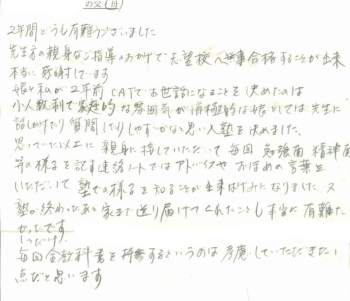 の父 母
2年間どうも有難うございました
先生方の親身なご指導のおかげで志望校へ無事合格することが出来
本当に感謝しています
娘と私が2年前CATでお世話になることを決めたのは
小人数制で家庭的な雰囲気が消極的な娘としては先生に
話しかけたり質問したりしやすいかなと思い入塾を決めました。
思っていた以上に親身に接していただいて毎回勉強面精神面
等の様子を記す連絡ノートではアドバイスやおほめの言葉を
いただいて塾での様子を知ることが出来はげみになりました 又
塾が終わったあと家まで送り届けてくれたことも本当に有難た
かったです
毎回全教科書を持参するというのは考慮していただきたい
点だと思います